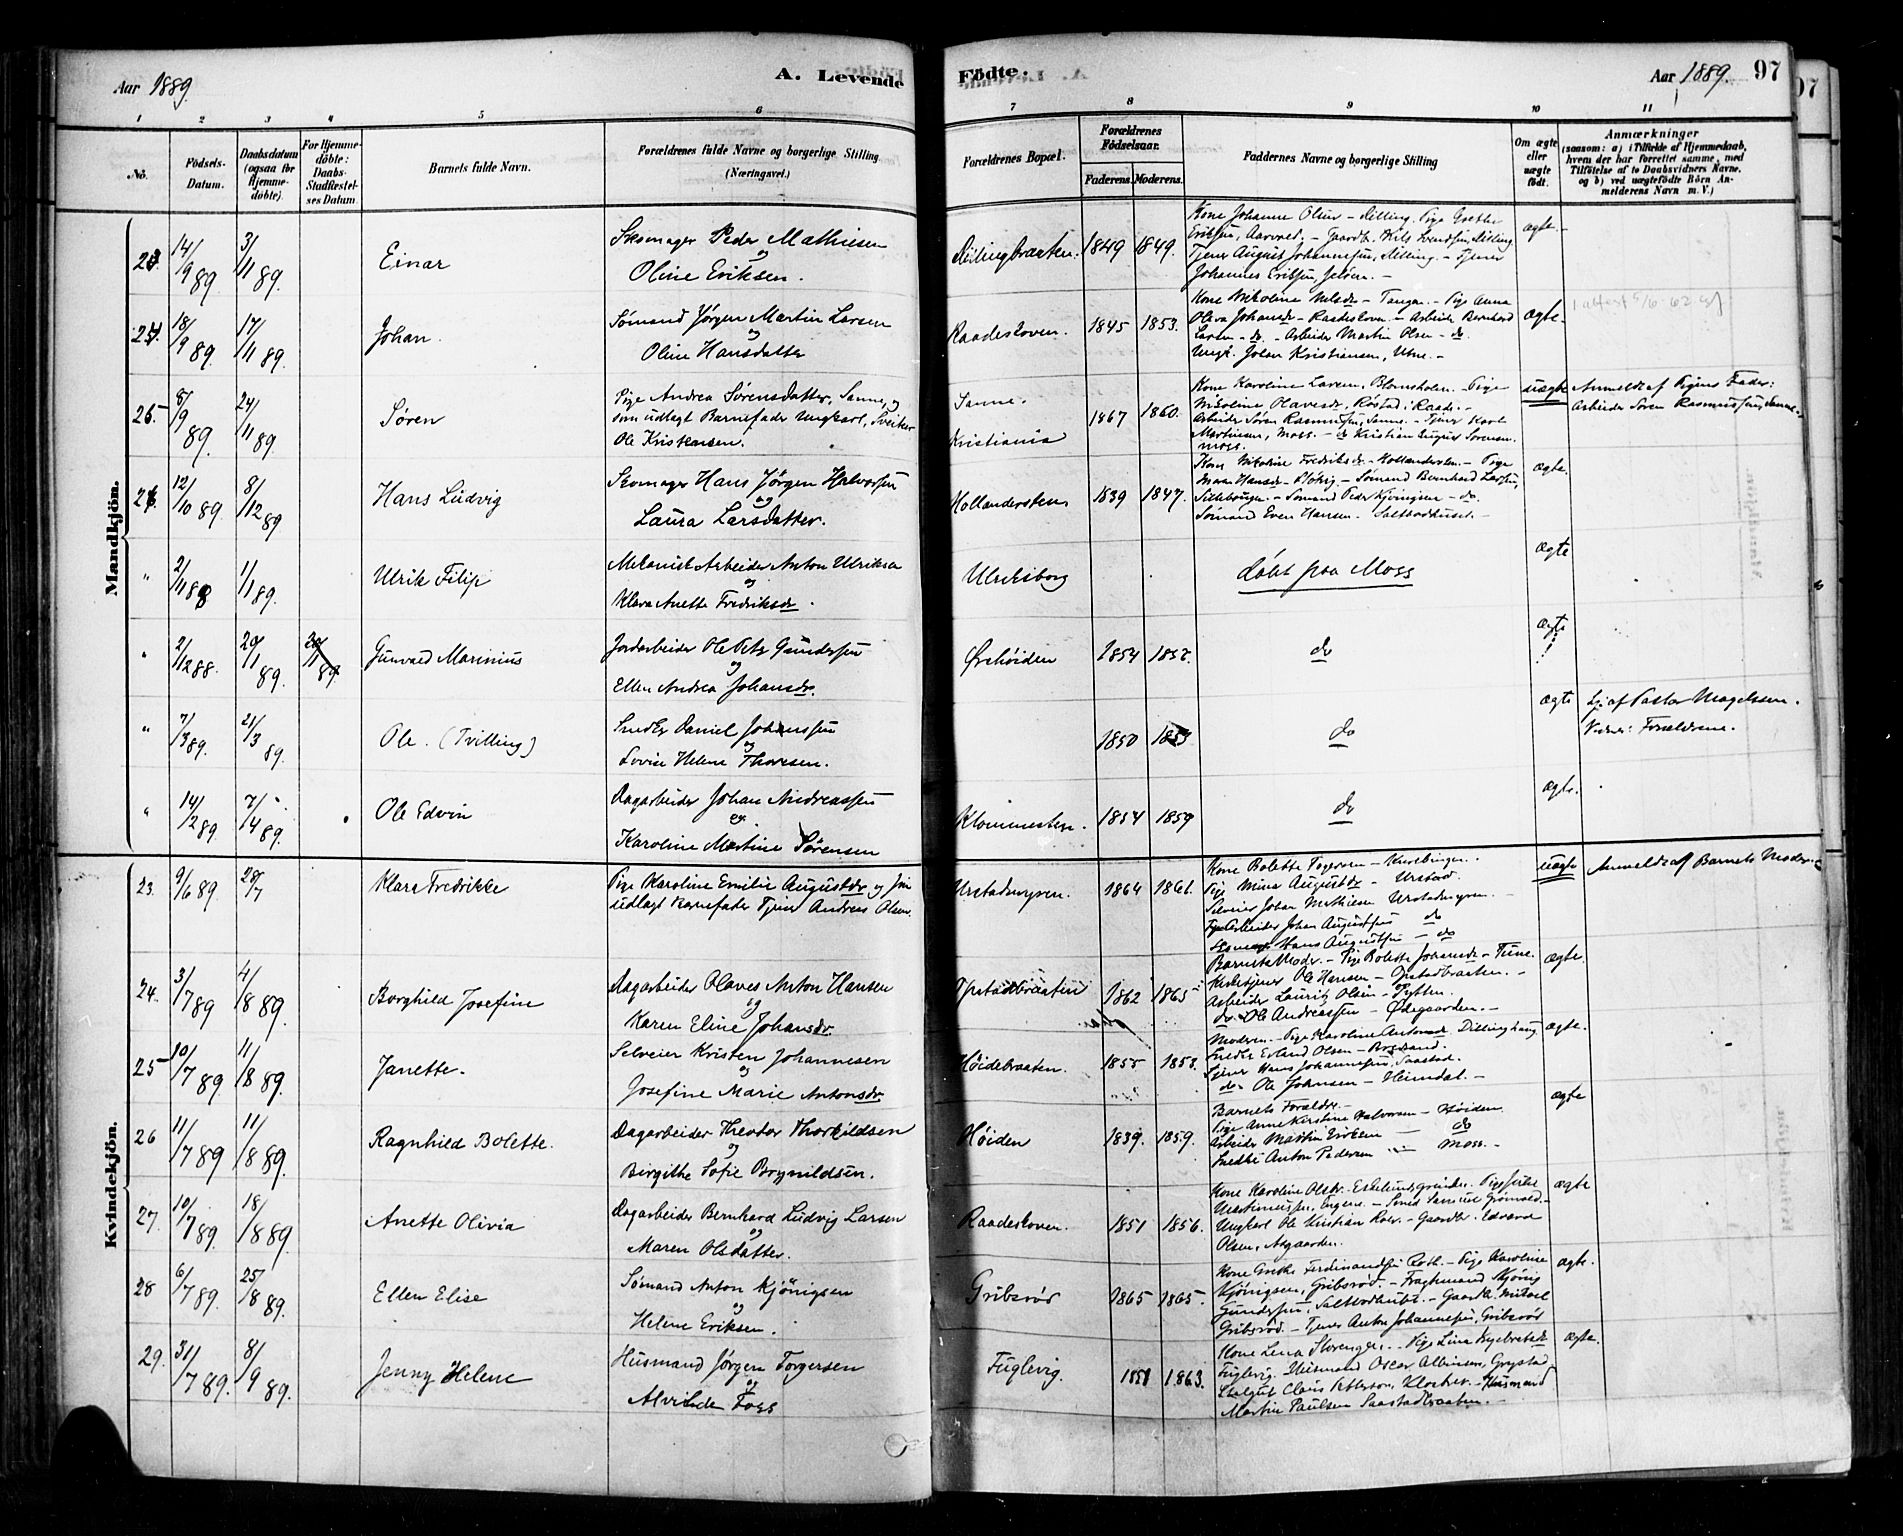 Aar 1889.
A. Levende
Födte.
Aar 1889.
97
1 2 3 4 5 6 7 8 9 10 11
No.
Födsels-
Datum.
Daabsdatum
(ogsaa for
Hjemme-
döbte).
For Hjemme-
döbte:
Daabs-
Stadfæstel-
ses Datum.
Barnets fulde Navn.
Forældrenes fulde Navne og borgerlige Stilling
(Næringsvei.)
Forældrenes Bopæl.
Forældrenes
Födselsaar.
Faderens. Moderens.
Faddernes Navne og borgerlige Stilling
Om ægte
eller
uægte
födt.
Anmærkninger
(saasom: a) i Tilfælde af Hjemmedaab,
hvem der har forrettet samme, med
Tilföielse af to Daabsvidners Navne,
og b) ved uægtefödte Börn An-
melderens Navn m. V.)
Mandkjön.
23. 14/9 89. 3/11 89. Einar
Skomager Peder Mathiesen
og
Oline Eriksen.
Dillingbraaten. 1849 1849.
Kone Johanne Olsen – Dilling. Pige Grethe
Eriksen, Aarvold. – Gaardb. Nils Svendsen, Dilling
Tjener August Johannesen, Dilling. – Tjener
Johannes Eriksen, Jeløen. –
ægte.
24. 18/9 89. 17/11 89. Johan.
Sømand Jørgen Martin Larsen
og
Oline Hansdatter
Raadeskoven. 1845 1853.
Kone Nikoline Nilsdr – Tangen. – Pige Anna
Oliva Johansdr – Raadeskoven. – Arbeider Bernhard
Larsen – do. – Arbeider Martin Olsen – do.
Ungk. Johan Kristiansen, Utne. –
ægte.
25. 8/9 89. 24/11 89. Søren
Pige Andrea Sørensdatter, Sanne, og
som udlagt Barnefader Ungkarl, Sveitser
Ole Kristensen.
Sanne.
Kristiania
1867 1860.
Kone Karoline Larsen, Blomsholm. – Pige
Nikoline Olavesdr, Røstad i Raade. –
Arbeider Søren Rasmussen, Sanne. – Tjener Karl
Martinsen, Moss. – do Kristian August Sørensen
Moss.
uægte
Anmeldt af Pigens Fader:
Arbeider Søren Rasmussen, Sanne.
26. 12/10 89 8/12 89. Hans Ludvig
Skomager Hans Jørgen Halvorsen
og
Laura Larsdatter.
Hollandersten 1839 1847.
Kone Nikoline Fredriksdr. – Hollandersten. – Pige
Sillebaugen. – Sømand Peder Kjønigsen – do.
Sømand Even Hansen. Saltbodhuset. –
ægte.
" 2/11 88 1/1 89. Ulrik Filip
Mekanisk Arbeider Anton Ulriksen
og
Klara Anette Fredriksdr.
Ulriksborg
døbt paa Moss
ægte
" 2/12 88. 20/1 89. 20/1 89. Gunvald Marinius
Jordarbeider Ole Petr Gundersen
og
Ellen Andrea Johansdr.
Ørehøiden 1854 1857.
do
ægte
" 7/3 89. 21/3 89. Ole. (Tvilling)
Snedker Daniel Johansen
og
Lovise Helene Thoresen.
1850 1853
do
ægte
Hj. af Pastor Magelssen.
Vidner: Forældrene.
" 14/2 89 7/4 89. Ole Edvin
Dagarbeider Johan Andreassen
og
Karoline Martine Sørensen
Klommesten. 1854 1859
do
ægte.
Kvindekjön.
23. 9/6 89 28/7 Klara Fredrikke
Pige Karoline Emilie Augustdr og som
udlagt Barnefader Tjener Andreas Olsen.
Urstadmyren. 1864 1861.
Kone Bolette Torgersen – Kurebingen.
Pige Mina Augustdr – Urstad.
Selveier Johan Mathiesen Urstadmyren. –
Arbeider Johan Augustsen do
Hans Augustsen – do
uægte
Anmeldt af Barnets Moder.
24. 3/7 89 4/8 89. Borghild Josefine
Dagarbeider Olaves Anton Hansen
og
Karen Eline Johansdr.
Opstadbraaten 1862 1865
Barnets Moder. – Pige Bolette Johansdr – Tune.
Kirketjener Ole Hansen – Opstadbraaten. –
Arbeider Lauritz Olsen – Pytten.
do. Ole Andreassen – Ødegaarden. –
ægte.
25 10/7 89 11/8 89. Janette.
Selveier Kristen Johannesen
og
Josefine Marie Antonsdr
Høidebraaten. 1855 1853.
Moderen. – Pige Karoline Antonsdr Dillinghaug
Snedker Erland Olsen –
Tjener Hans Johannesen, Saastad.
do – Ole Johnsen – Heimdal. –
ægte.
26 11/7 89 11/8 89. Ragnhild Bolette.
Dagarbeider Theodor Thorkildsen
og
Birgithe Sofie Brynildsen.
Høiden 1839. 1859.
Barnets Forældre. –
Pige Anne Kirstine Halvorsen – Høiden
Arbeider Martin Eriksen – do
Snedker Anton Pedersen – Moss. –
ægte
27. 10/7 89. 18/8 89. Anette Olivia
Dagarbeider Bernhard Ludvig Larsen
og
Maren Olsdatter.
Raadeskoven. 1851 1856.
Kone Karoline Olsdr. Eskelundgrinden. Pige
Martinussen, Engene. – Smed Samuel Grønvold –
Ungkarl Ole Kristian Roer. – Gaardbr. Edvard
Olsen, Aasgaarden.
ægte
28 6/7 89. 25/8 89. Ellen Elise
Sømand Anton Kjönigsen
og
Helene Eriksen.
Gribsrød 1865 1865.
Kone Grethe Ferdinandsen Roth. – Pige Karoline
Kjönigsen, Gribsrød. – Fragtmand Kjönig
Gundersen, Saltbodhuset. – Gaardbr. Mikael
Gribsrød. – Tjener Anton Johannesen, Gribsrød
ægte.
29. 31/7 89. 8/9 89. Jenny Helene
Husmand Jørgen Torgersen
og
Alvilde Foss
Fuglevig. 1858 1863.
Kone Lena Slorenger. – Pige Lina Ingebretsdr
Fuglevig. Husmand Oscar Albinsen, Grystad
Staldgut Claus Petterson, Kloster. – Husmand
Martin Paulsen Saastadbraaten. –
ægte.